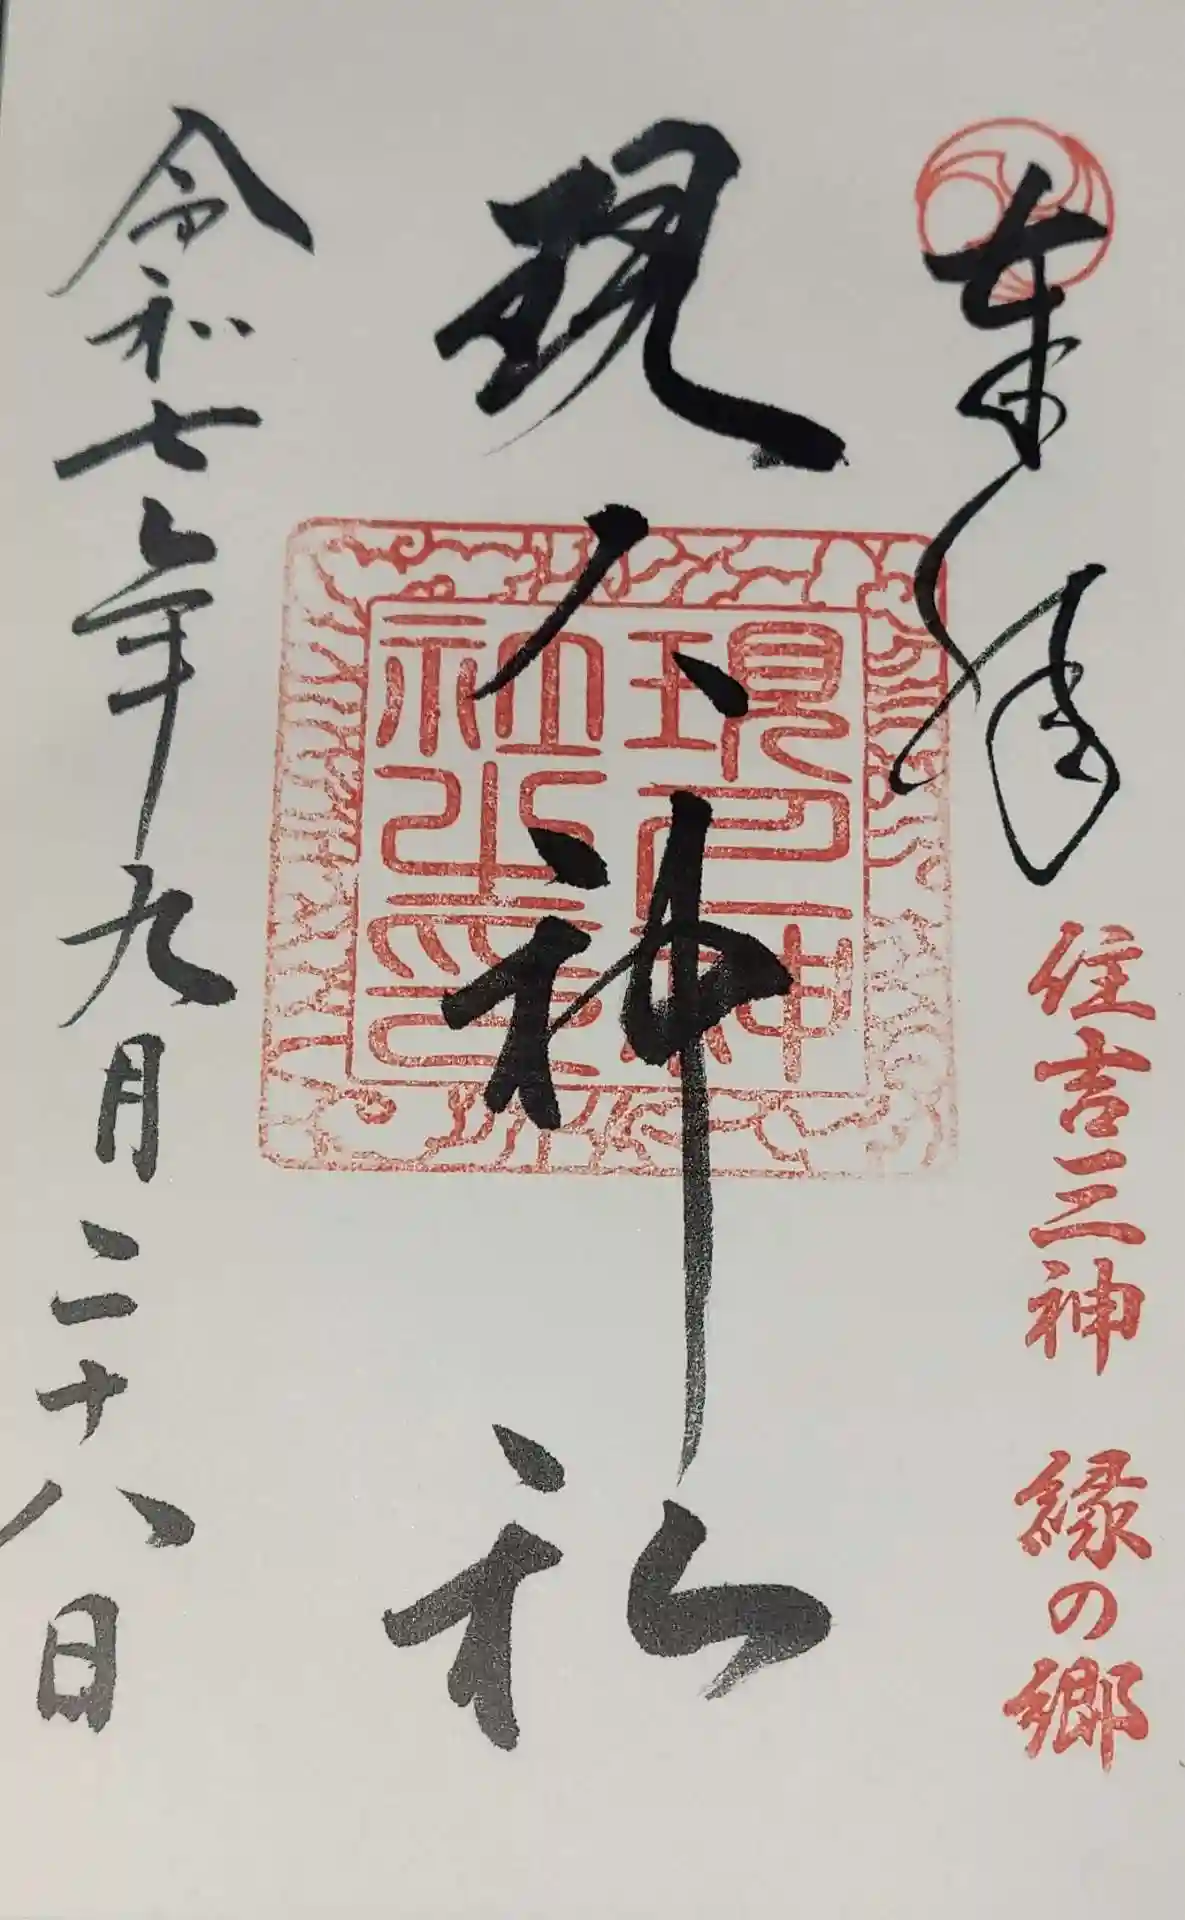 奉拝
住吉三神 縁の郷
現人神社
現人神
社之印
令和七年九月二十八日